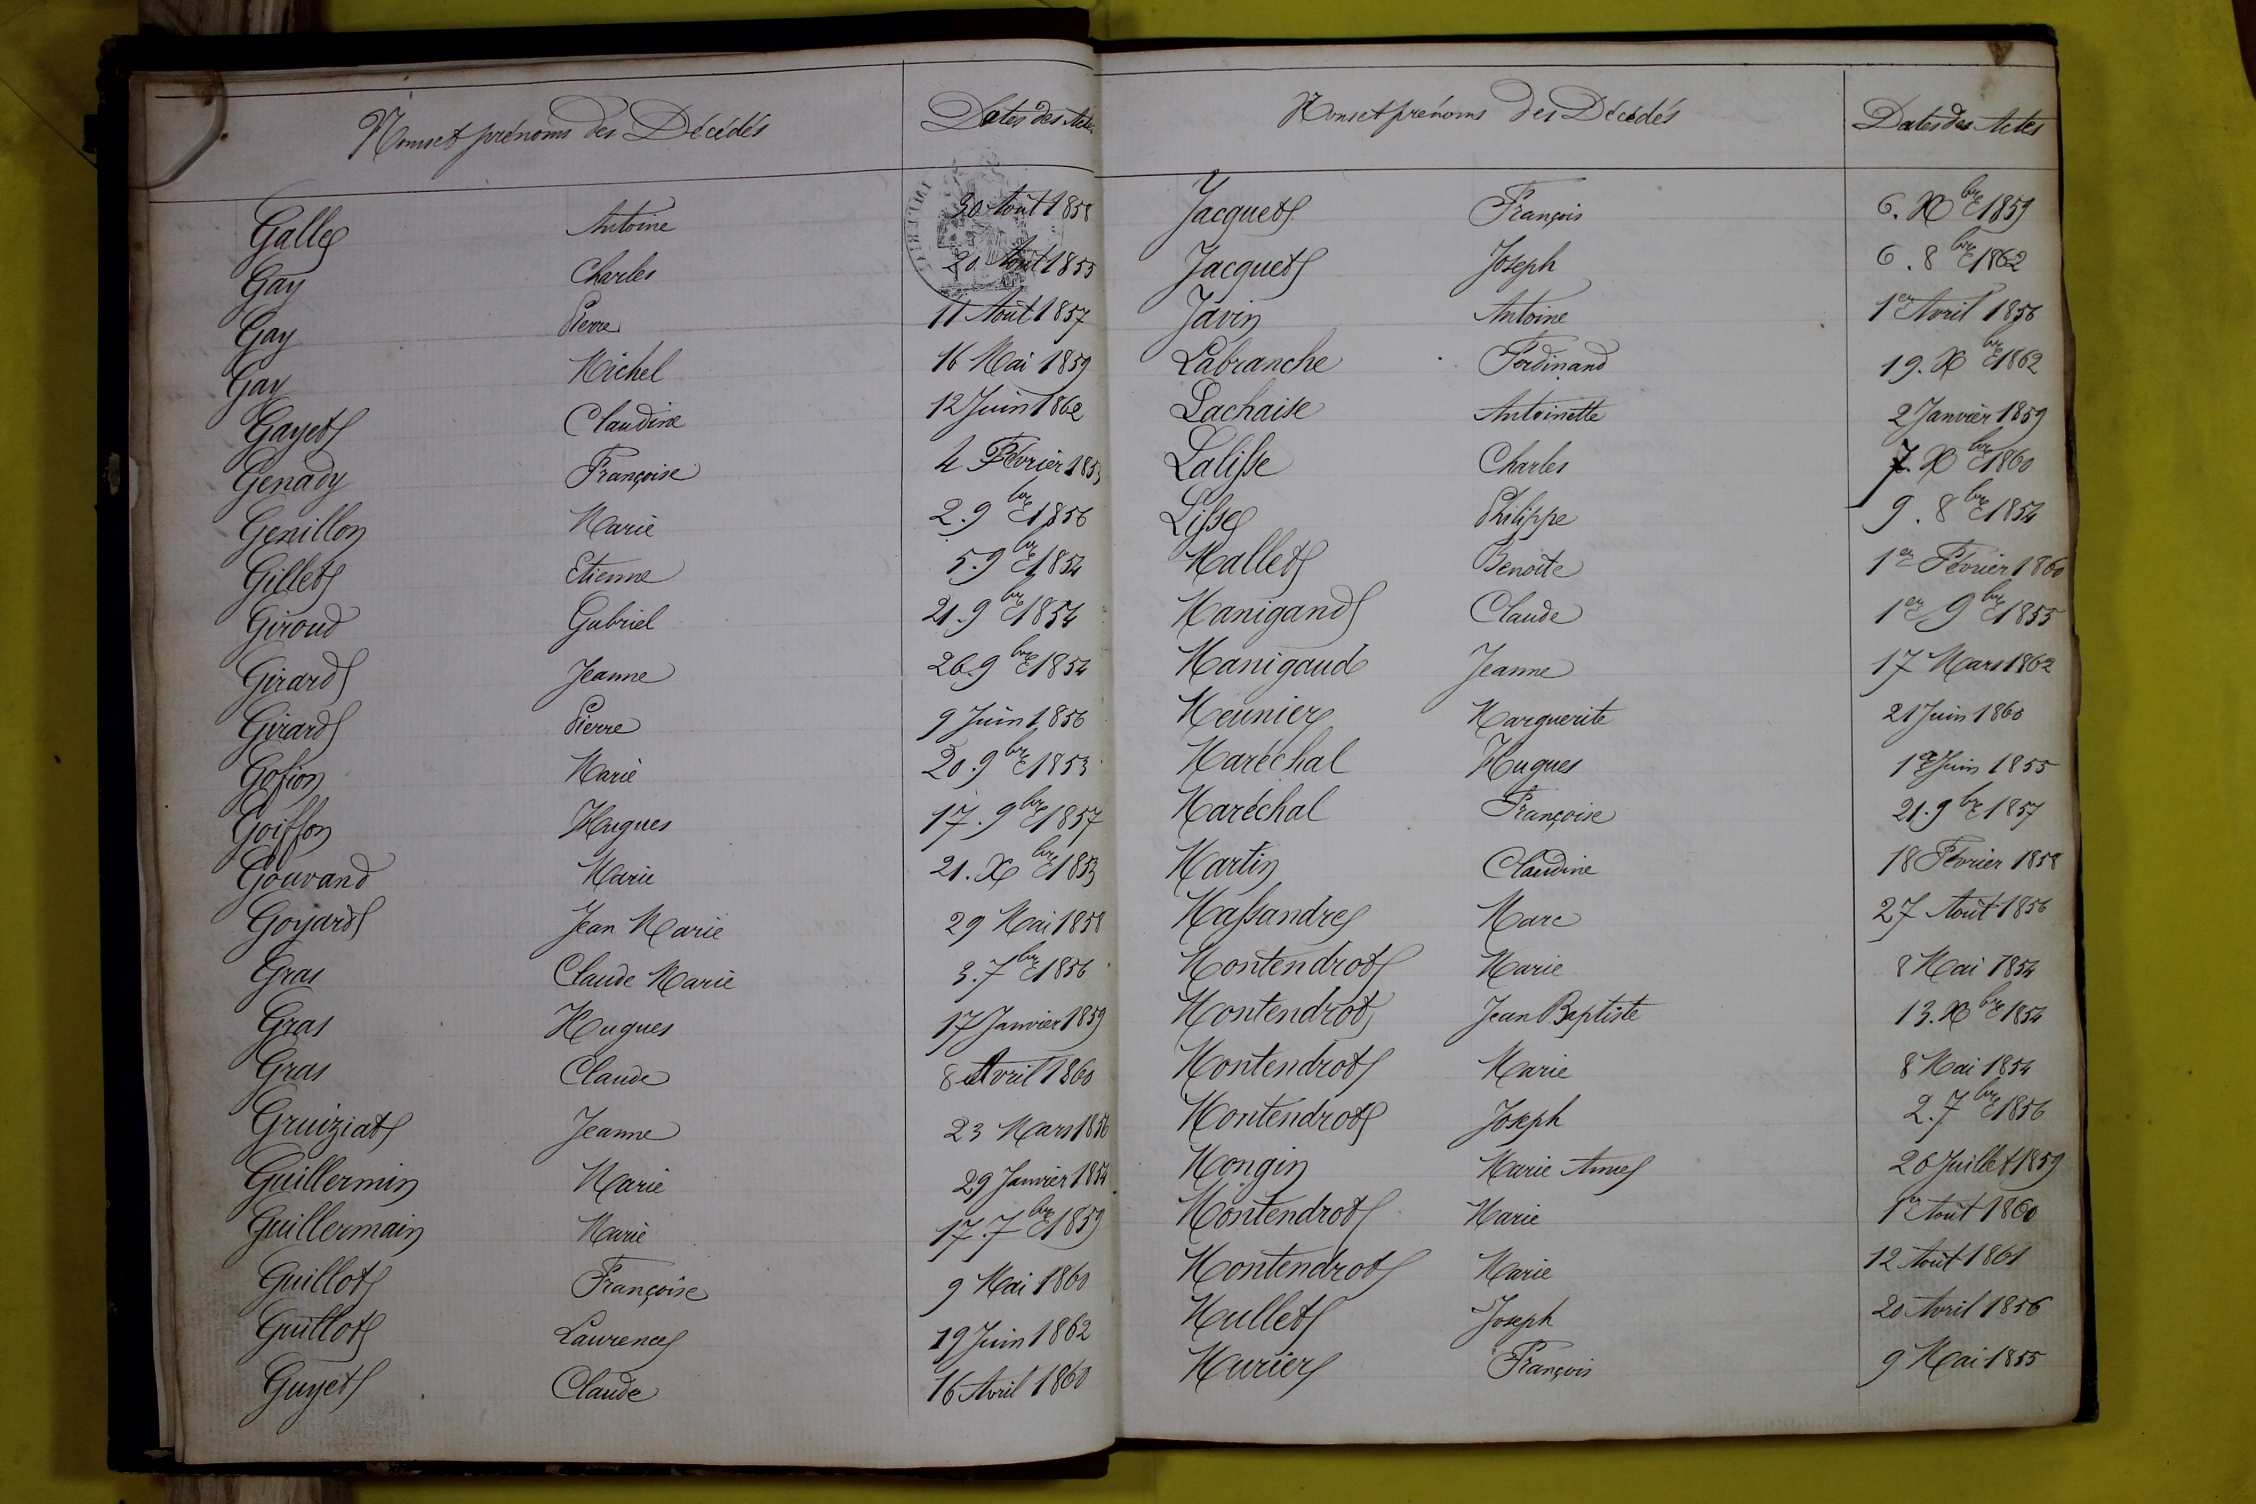 Noms et prénoms des Décédés Dates des Actes
Galle Antoine 30 Août 1858
Gay Charles 20 Août 1855
Gay Pierre 11 Août 1857
Gay Michel 16 Mai 1859
Gayet Claudine 12 Juin 1862
Genady Françoise 4 Février 1853
Genillon Marie 2. 9bre 1856
Gillet Etienne 5. 9bre 1854
Giroud Gabriel 21. 9bre 1854
Girard Jeanne 26. 9bre 1854
Girard Pierre 9 Juin 1856
Gofion Marie 20. 9bre 1853
Goiffon Hugues 17. 9bre 1857
Gouvand Marie 21. Xbre 1853
Goyard Jean Marie 29 Mai 1858
Gras Claude Marie 3. 7bre 1856
Gras Hugues 17 Janvier 1859
Gras Claude 8 Avril 1860
Gruiziat Jeanne 23 Mars 1856
Guillermin Marie 29 Janvier 1854
Guillermain Marie 17. 7bre 1859
Guillot Françoise 9 Mai 1860
Guillot Laurence 19 Juin 1862
Guyet Claude 16 Avril 1860
Noms et prénoms des Décédés Dates des Actes
Jacquet François 6. Xbre 1859
Jacquet Joseph 6. 8bre 1862
Javin Antoine 1er Avril 1856
Labranche Ferdinand 19. Xbre 1862
Lachaise Antoinette 2 Janvier 1859
Lalisse Charles 7. Xbre 1860
Lisse Philippe 9. 8bre 1854
Mallet Benoîte 1er Février 1860
Manigand Claude 1er 9bre 1855
Manigaud Jeanne 17 Mars 1862
Meunier Marguerite 21 Juin 1860
Maréchal Hugues 1er Juin 1855
Maréchal Françoise 21. 9bre 1857
Martin Claudine 18 Février 1858
Massandre Marc 27 Août 1856
Montendrot Marie 8 Mai 1854
Montendrot Jean Baptiste 13. Xbre 1854
Montendrot Marie 8 Mai 1854
Montendrot Joseph 2. 7bre 1856
Mongin Marie Anne 26 Juillet 1859
Montendrot Marie 1er Août 1860
Montendrot Marie 12 Août 1861
Mullet Joseph 20 Avril 1856
Murier François 9 Mai 1855